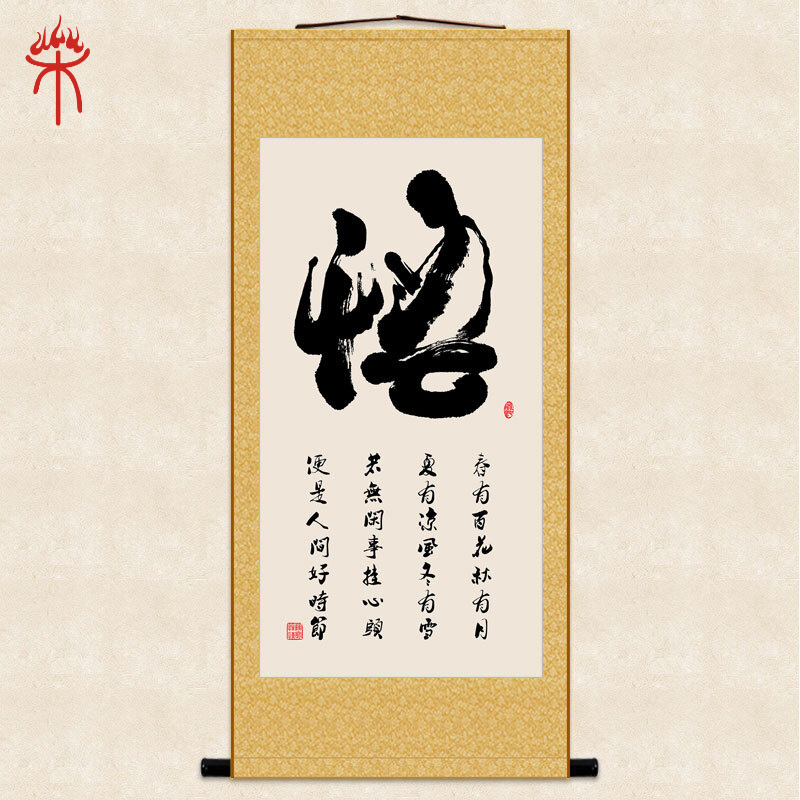 悟
春有百花秋有月
夏有凉風冬有雪
若無閑事挂心頭
便是人間好時節